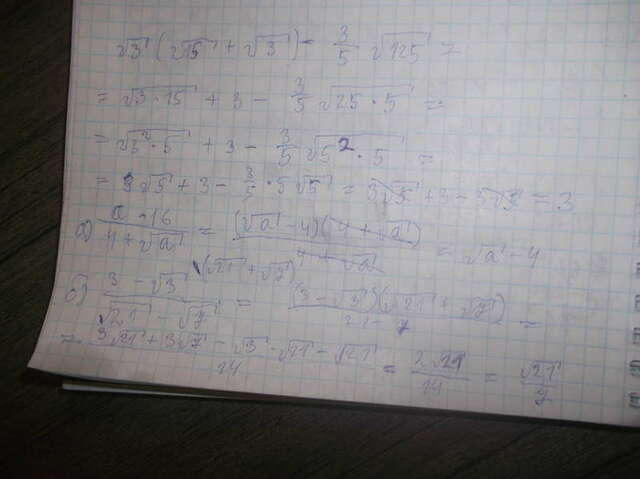 √3 (√15 + √3) - 3/5 √125 =
= √3·15 + 3 - 3/5 √25·5 =
= √3²·5 + 3 - 3/5 √5²·5 =
= 3√5 + 3 - 3/5·5√5 = 3√5 + 3 - 3√5 = 3
а) a-16/4+√a = (√a-4)(4+√a)/4+√a = √a-4
б) 3-√3/√21-√7 \(√21+√7) = (3-√3)(√21+√7)/21-7 =
= 3√21+3√7-√3·√21-√21/14 = 2√21/14 = √21/7